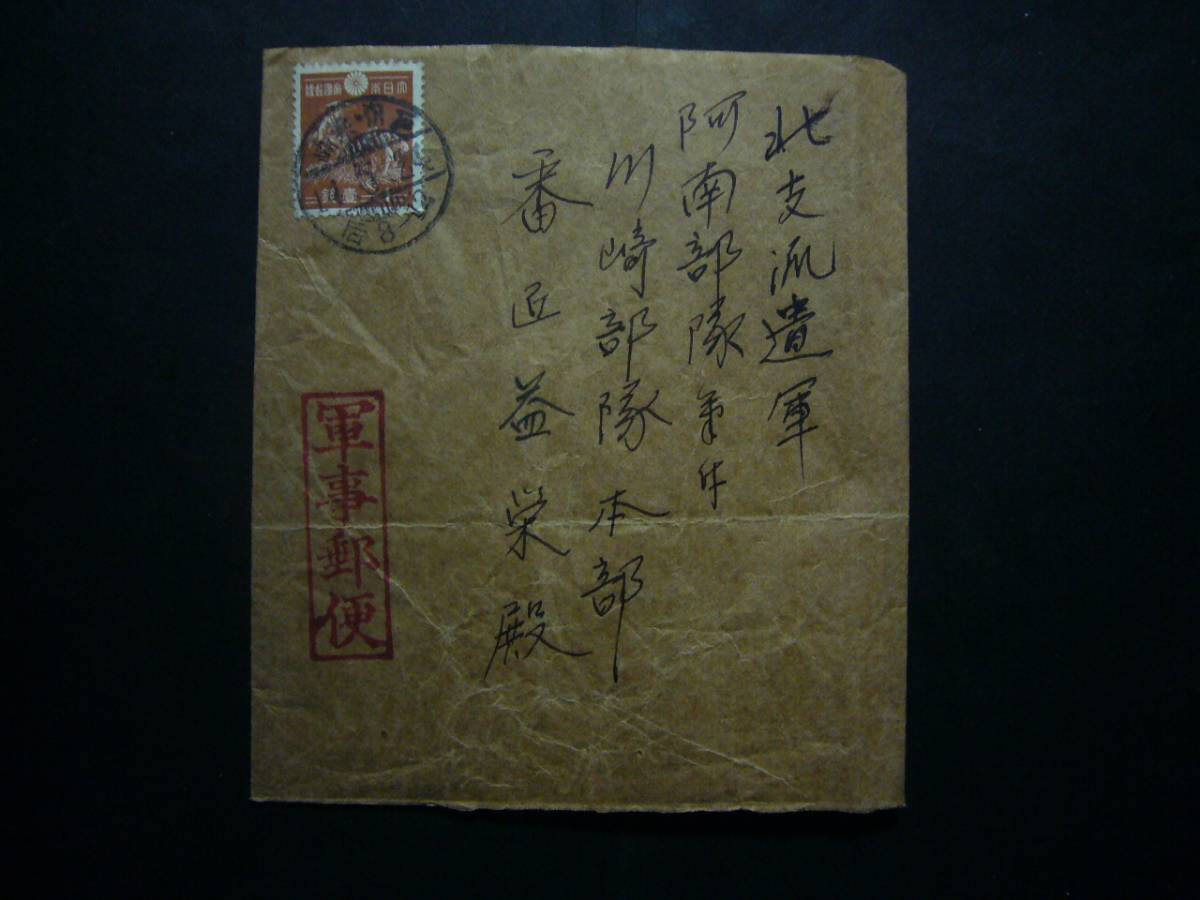 北支派遣軍
阿南部隊気付
川崎部隊本部
番匠益栄殿
軍事郵便
大日本帝國郵便